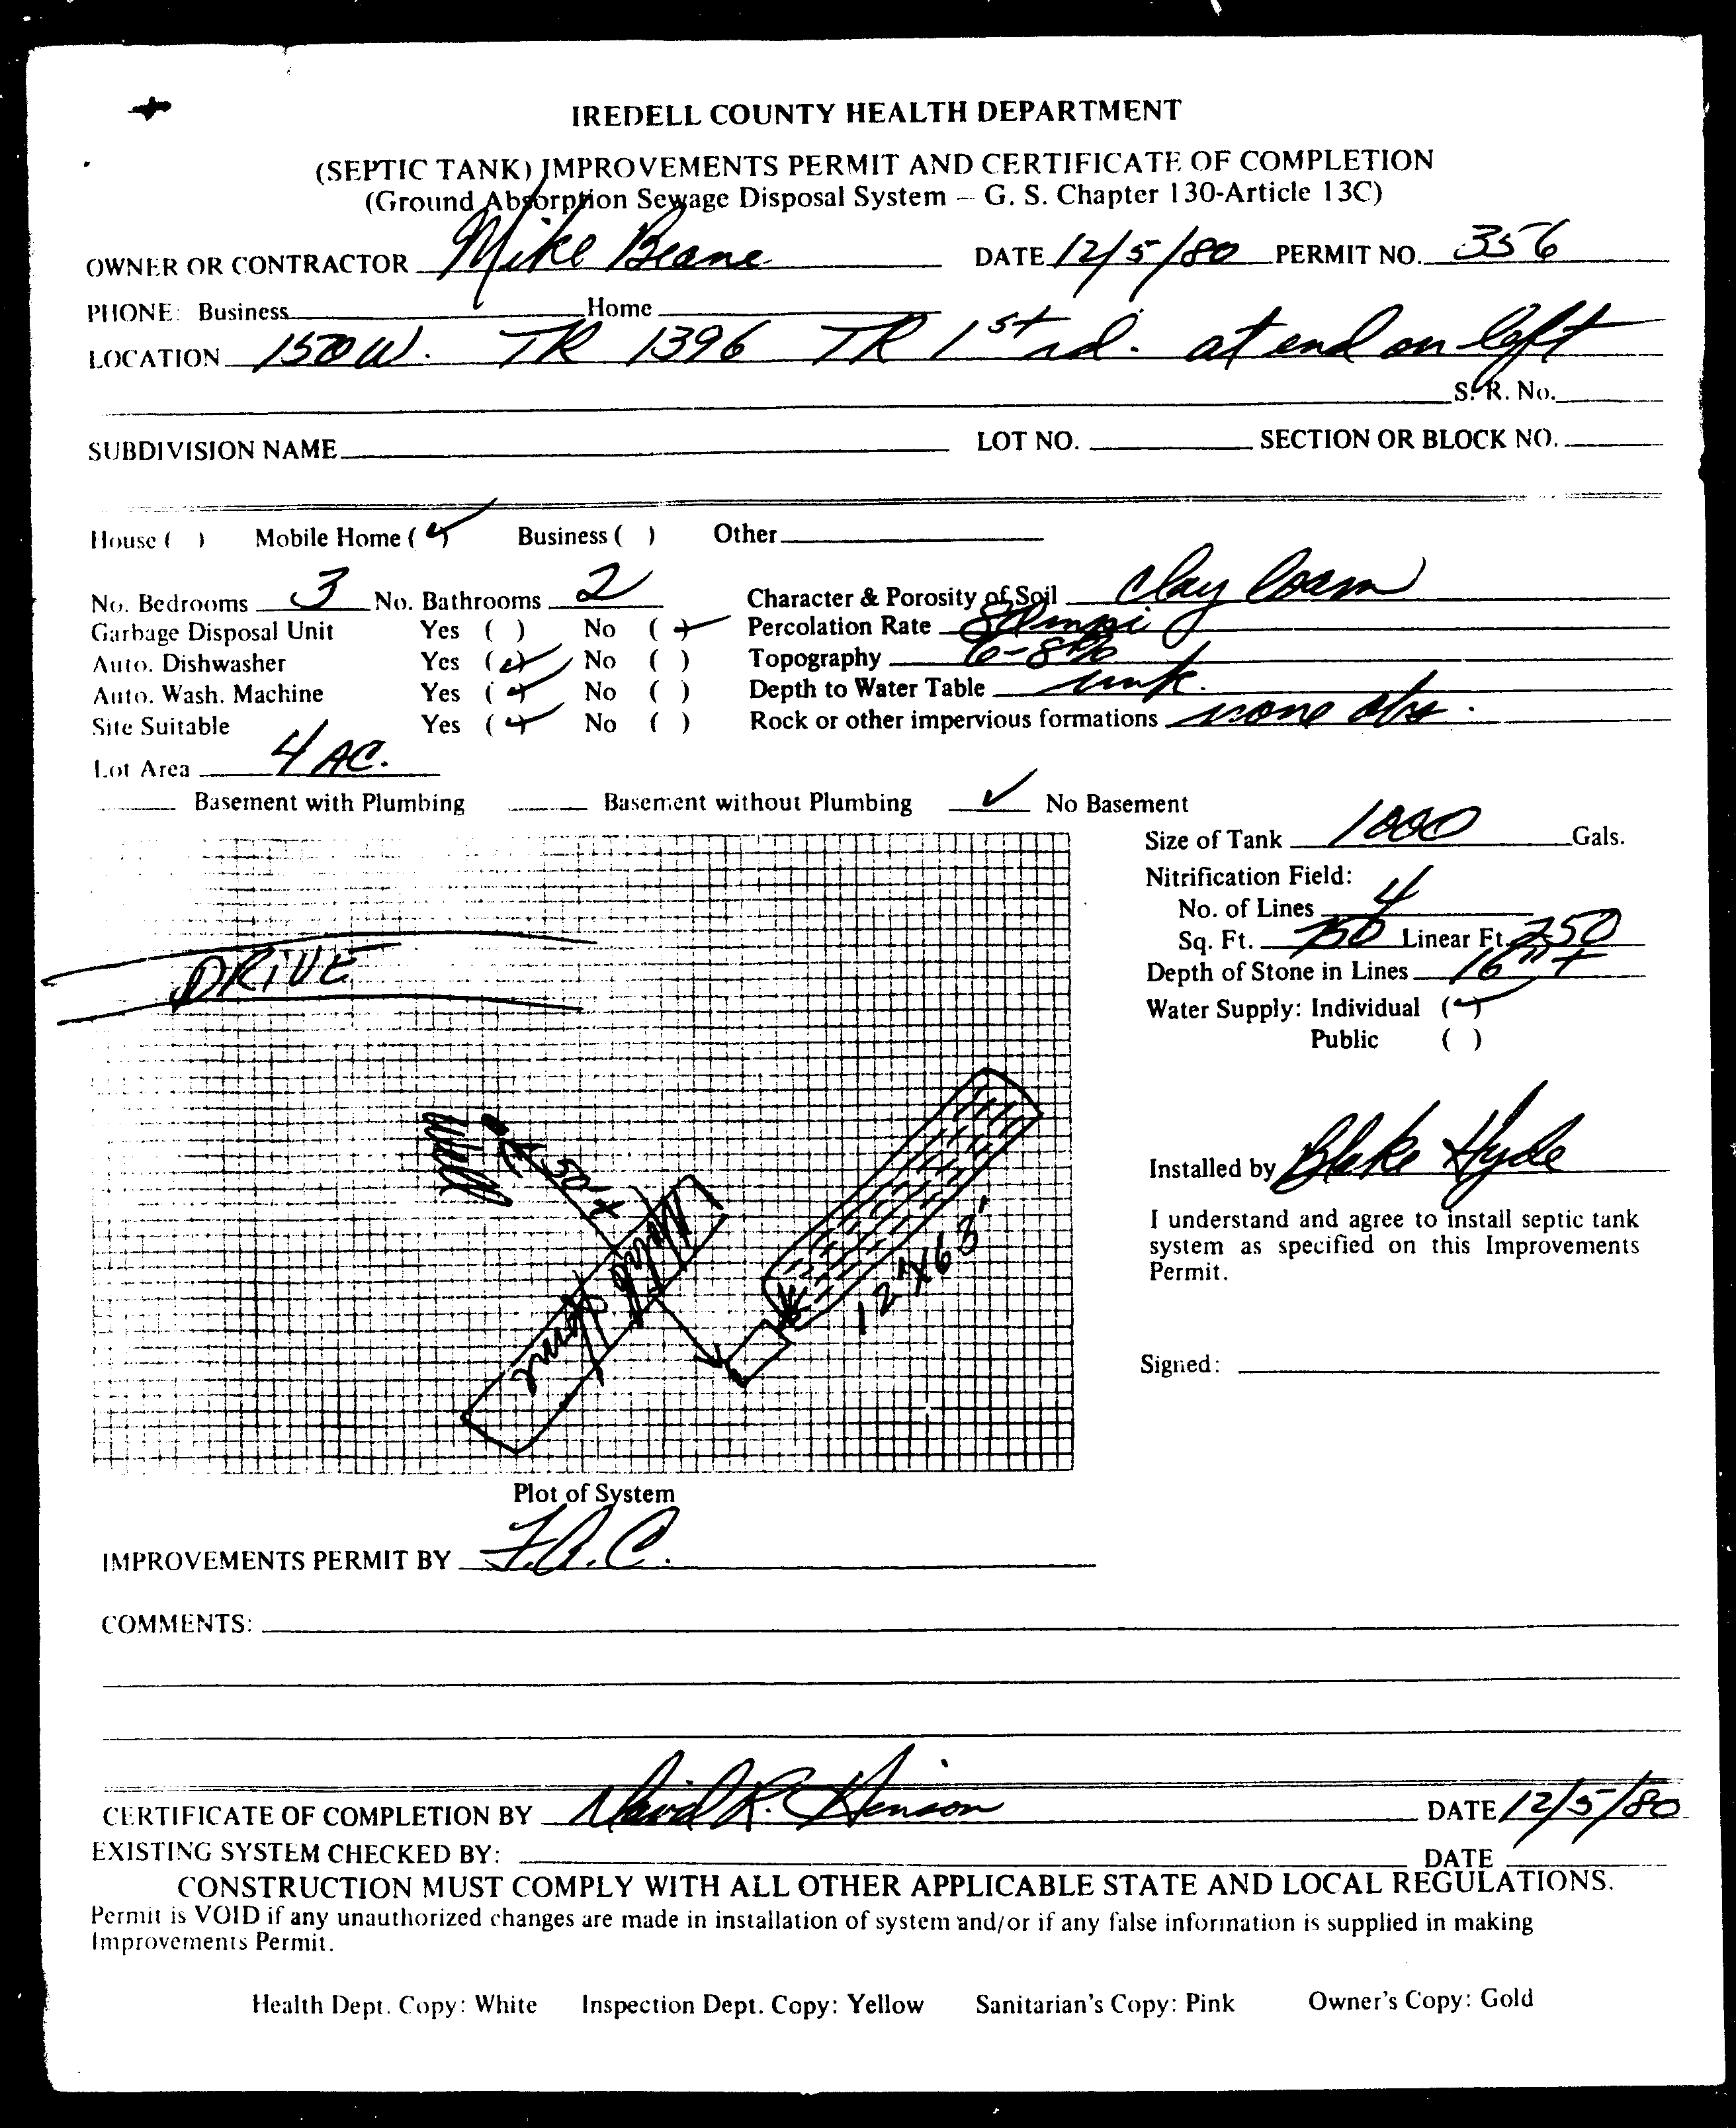 IREDELL COUNTY HEALTH DEPARTMENT
(SEPTIC TANK) IMPROVEMENTS PERMIT AND CERTIFICATE OF COMPLETION
(Ground Absorption Sewage Disposal System – G. S. Chapter 130-Article 13C)
OWNER OR CONTRACTOR Mike Beane DATE 12/5/80 PERMIT NO. 356
PHONE: Business Home
LOCATION 150 W. TR 1396 TR 1st rd. at end on left
S. R. No.
SUBDIVISION NAME LOT NO. SECTION OR BLOCK NO.
House ( ) Mobile Home (✓) Business ( ) Other
No. Bedrooms 3 No. Bathrooms 2 Character & Porosity of Soil Clay loam
Garbage Disposal Unit Yes ( ) No (✓) Percolation Rate 80 mpi
Auto. Dishwasher Yes (✓) No ( ) Topography 6-8%
Auto. Wash. Machine Yes (✓) No ( ) Depth to Water Table unk.
Site Suitable Yes (✓) No ( ) Rock or other impervious formations none obs.
Lot Area 4 AC.
Basement with Plumbing Basement without Plumbing ✓ No Basement
Size of Tank 1000 Gals.
Nitrification Field:
No. of Lines 4
Sq. Ft. 750 Linear Ft. 250
Depth of Stone in Lines 16"+
Water Supply: Individual (✓)
Public ( )
DRIVE
Well
50'+
Mobile Home
12'x63'
Installed by Blake Hyde
I understand and agree to install septic tank
system as specified on this Improvements
Permit.
Signed:
Plot of System
IMPROVEMENTS PERMIT BY F.A.C.
COMMENTS:
CERTIFICATE OF COMPLETION BY David R. Henson DATE 12/5/80
EXISTING SYSTEM CHECKED BY: DATE
CONSTRUCTION MUST COMPLY WITH ALL OTHER APPLICABLE STATE AND LOCAL REGULATIONS.
Permit is VOID if any unauthorized changes are made in installation of system and/or if any false information is supplied in making
Improvements Permit.
Health Dept. Copy: White Inspection Dept. Copy: Yellow Sanitarian's Copy: Pink Owner's Copy: Gold